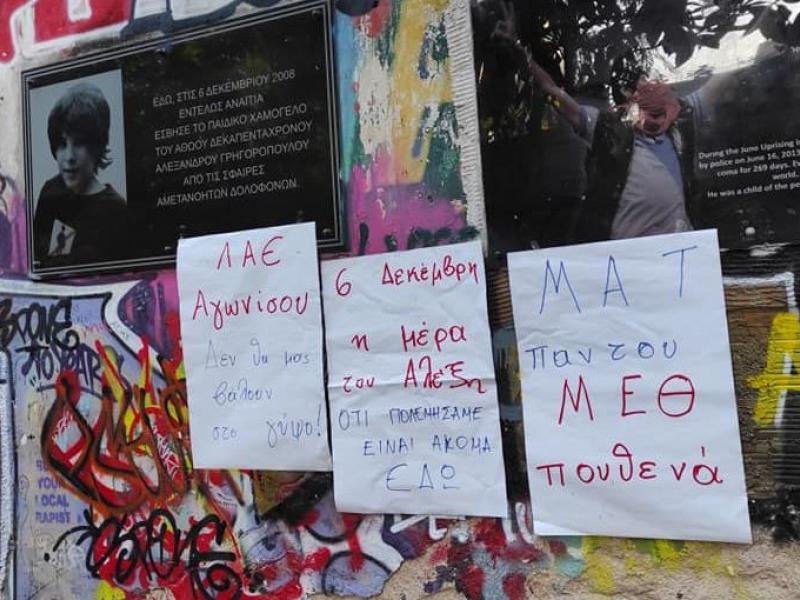 ΕΔΩ, ΣΤΙΣ 6 ΔΕΚΕΜΒΡΙΟΥ 2008
ΕΝΤΕΛΩΣ ΑΝΑΙΤΙΑ
ΕΣΒΗΣΕ ΤΟ ΠΑΙΔΙΚΟ ΧΑΜΟΓΕΛΟ
ΤΟΥ ΑΘΩΟΥ ΔΕΚΑΠΕΝΤΑΧΡΟΝΟΥ
ΑΛΕΞΑΝΔΡΟΥ ΓΡΗΓΟΡΟΠΟΥΛΟΥ
ΑΠΟ ΤΙΣ ΣΦΑΙΡΕΣ
ΑΜΕΤΑΝΟΗΤΩΝ ΔΟΛΟΦΟΝΩΝ.
During the June Uprising i
by police on June 16, 2013
coma for 269 days. Ev
world.
He was a child of the pe
ΛΑΕ
Αγωνίσου
Δεν θα μας
βάλουν
στο γύψο!
6 Δεκέμβρη
η μέρα
του Αλέξη
ΟΤΙ ΠΟΛΕΜΗΣΑΜΕ
ΕΙΝΑΙ ΑΚΟΜΑ
ΕΔΩ
ΜΑΤ
παντου
ΜΕΘ
πουθενά
YOUR
LOCAL
RAPIST